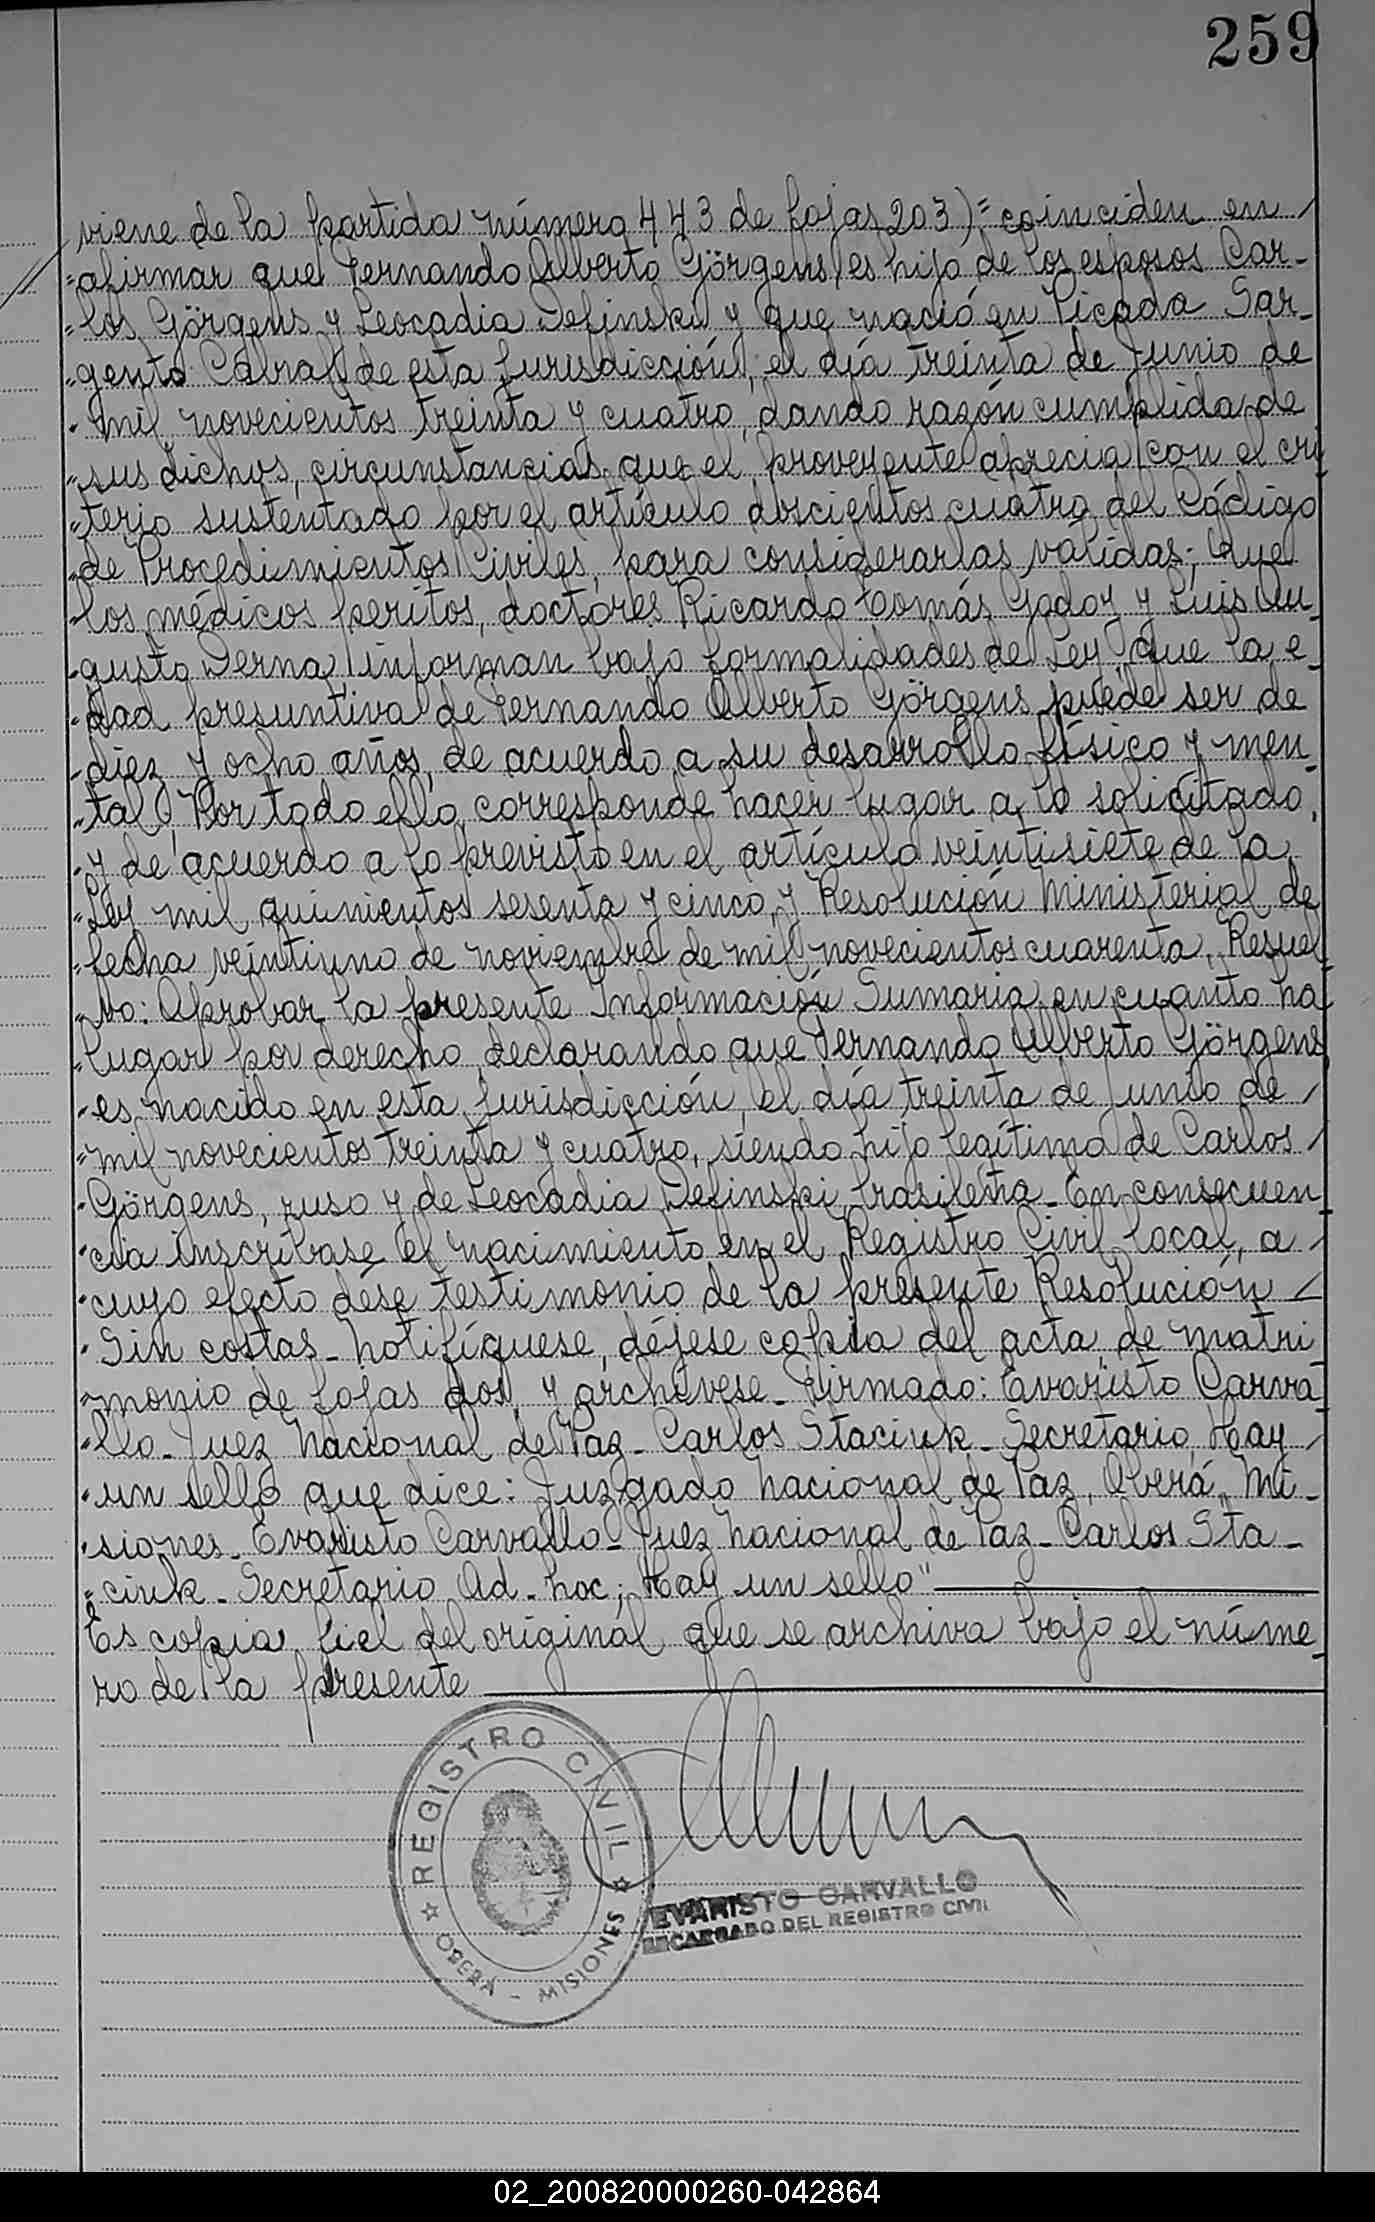 259
viene de la partida número 443 de fojas 203) "coinciden en
"afirmar que Fernando Alberto Görgens, es hijo de los esposos Car-
"los Görgens y Leocadia Definski y que nació en Picada Sar-
"gento Cabral de esta jurisdicción, el día treinta de Junio de
"mil novecientos treinta y cuatro, dando razón cumplida de
"sus dichos, circunstancias que el proveyente aprecia con el cri
"terio sustentado por el artículo doscientos cuatro del Código
"de Procedimientos Civiles, para considerarlas válidas; Que
"los médicos peritos, doctores Ricardo Tomás Godoy y Luis Au-
"gusto Derna, informan bajo formalidades de Ley, que la e-
"dad presuntiva de Fernando Alberto Görgens puede ser de
"diez y ocho años, de acuerdo a su desarrollo físico y men-
"tal. Por todo ello, corresponde hacer lugar a lo solicitado,
"y de acuerdo a lo previsto en el artículo veintisiete de la
"Ley mil quinientos sesenta y cinco y Resolución Ministerial de
"fecha veintiuno de noviembre de mil novecientos cuarenta, Resuel-
"vo: Aprobar la presente Información Sumaria en cuanto ha
"lugar por derecho, declarando que Fernando Alberto Görgens
"es nacido en esta jurisdicción, el día treinta de Junio de
"mil novecientos treinta y cuatro, siendo hijo legítimo de Carlos
"Görgens, ruso y de Leocadia Definski, brasileña_ En consecuen
"cia inscríbase el nacimiento en el Registro Civil local, a
"cuyo efecto dése testimonio de la presente Resolución
"Sin costas_ Notifíquese, déjese copia del acta de matri
"monio de fojas dos, y archívese_ Firmado: Evaristo Carva
"llo_ Juez Nacional de Paz_ Carlos Staciuk_ Secretario, Hay
"un sello que dice: Juzgado Nacional de Paz, Oberá, Mi-
"siones_ Evaristo Carvallo_ Juez Nacional de Paz_ Carlos Sta-
"ciuk_ Secretario Ad_hoc; Hay un sello"
Es copia fiel del original que se archiva bajo el núme-
ro de la presente
REGISTRO CIVIL
OBERÁ - MISIONES
EVARISTO CARVALLO
ENCARGADO DEL REGISTRO CIVIL
02_200820000260-042864